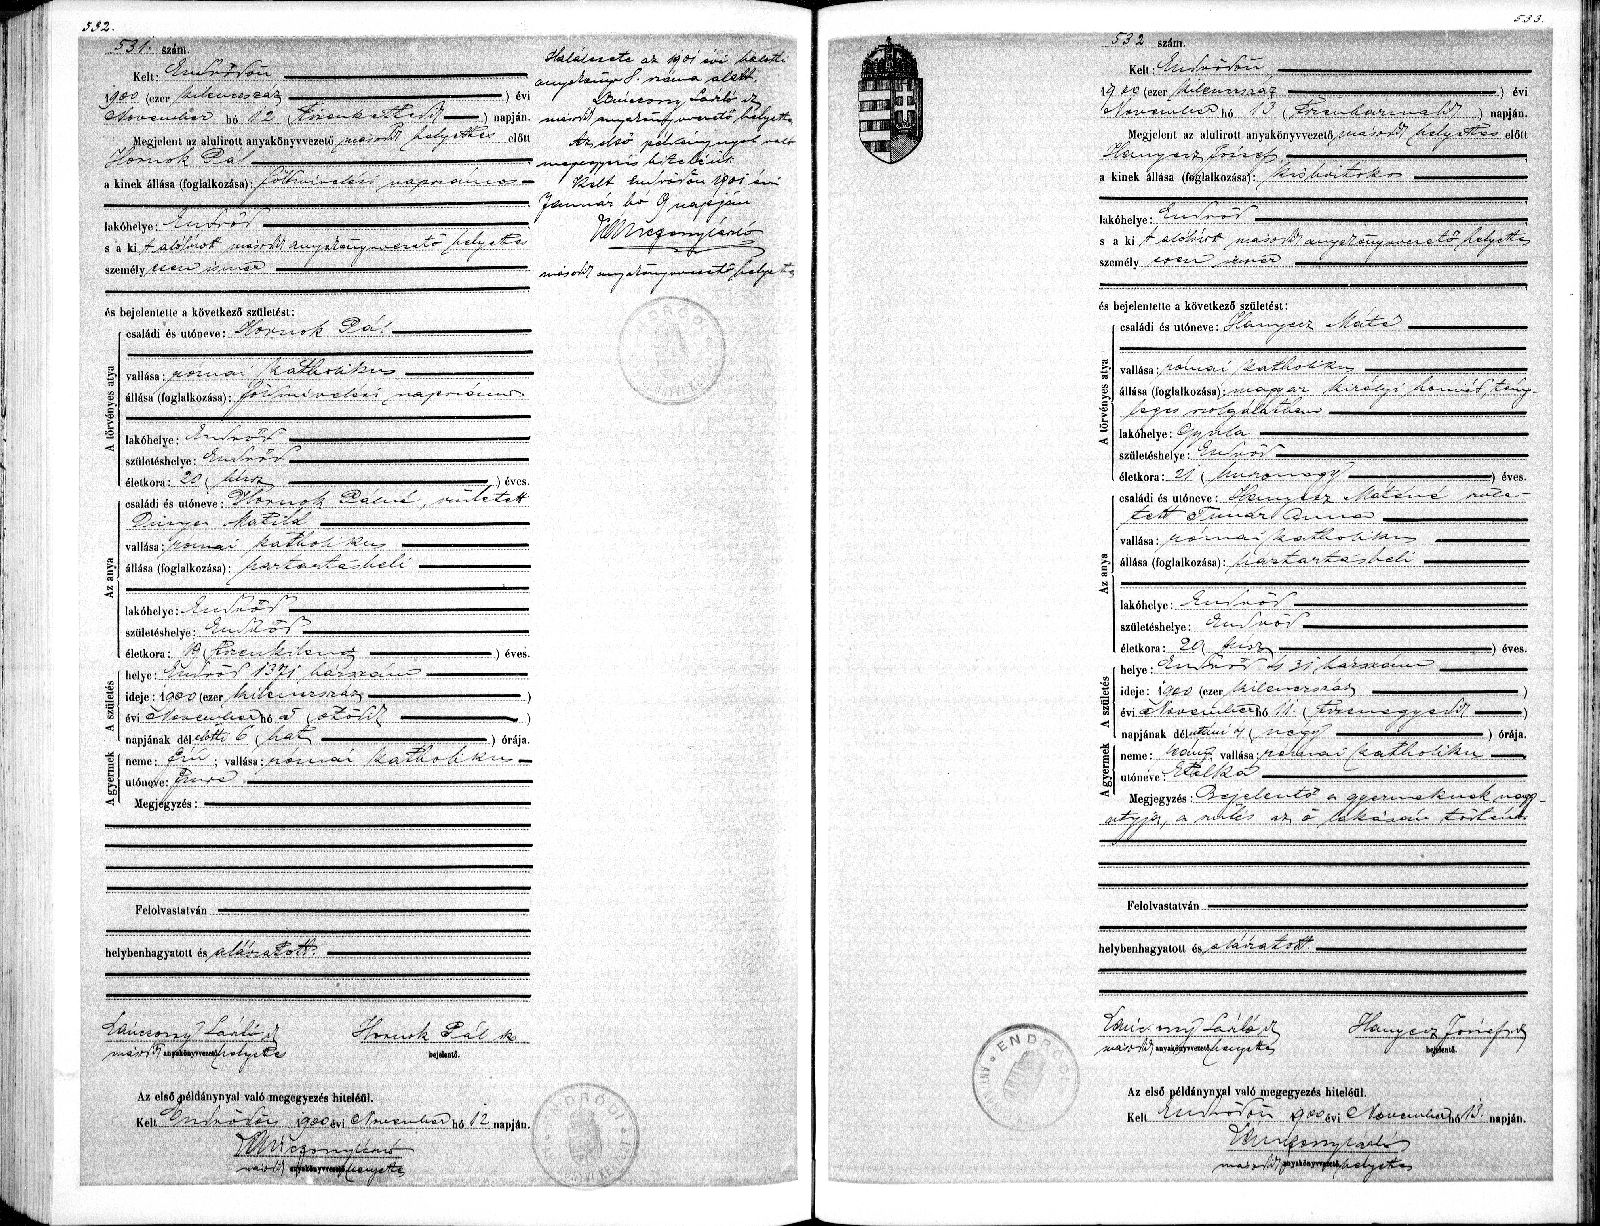 532.
531. szám.
Kelt: Endrődön
1900 (ezer kilencszáz) évi
November hó 12 (tizenkettedik) napján.
Megjelent az alulirott anyakönyvvezető másodk helyettes előtt
Hornok Pál
a kinek állása (foglalkozása): földmivelési napszámos
lakóhelye: Endrőd
s a ki t alólirott másodk anyakönyvvezető helyettes
személyesen ismer
és bejelentette a következő születést:
A törvényes atya
családi és utóneve: Hornok Pál
vallása: római katholikus
állása (foglalkozása): földmivelési napszámos
lakóhelye: Endrőd
születéshelye: Endrőd
életkora: 20 (húsz) éves.
Az anya
családi és utóneve: Hornok Pálné, született
Dinya Matild
vallása: római katholikus
állása (foglalkozása): háztartásbeli
lakóhelye: Endrőd
születéshelye: Endrőd
életkora: 19 (tizenkilenc) éves.
A születés
helye: Endrőd 1371 házszám
ideje: 1900 (ezer kilencszáz)
évi November hó 5 (ötödik)
napjának délelőtti 6 (hat) órája.
A gyermek
neme: fiú; vallása: római katholikus
utóneve: Imre
Megjegyzés:
Felolvastatván
helybenhagyatott és aláiratott.
Lánczsony László sk
másodk anyakönyvvezető helyettes
Hornok Pál sk
bejelentő.
Az első példánynyal való megegyezés hiteléül.
Kelt Endrődön 1900 évi November hó 12 napján.
másodk anyakönyvvezető helyettes
Halálesete az 1901 évi halotti
anyakönyv 8. száma alatt.
László sk
másodk anyakönyvvezető helyettes
Az első példánynyal való
megegyezés hiteléül.
Kelt Endrődön 1901 évi
Januar hó 9 napján
másodk anyakönyvvezető helyettes
533.
532 szám.
Kelt: Endrődön
1900 (ezer kilencszáz) évi
November hó 13 (tizenharmadik) napján.
Megjelent az alulirott anyakönyvvezető másodk helyettes előtt
Hanyecz József
a kinek állása (foglalkozása): kisbirtokos
lakóhelye: Endrőd
s a ki t alólirott másodk anyakönyvvezető helyettes
személyesen ismer
és bejelentette a következő születést:
A törvényes atya
családi és utóneve: Hanyecz Máté
vallása: római katholikus
állása (foglalkozása): magyar királyi honvéd, tény-
leges szolgálatban
lakóhelye: Gyula
születéshelye: Endrőd
életkora: 21 (huszonegy) éves.
Az anya
családi és utóneve: Hanyecz Máténé szüle-
tett Timár Anna
vallása: római katholikus
állása (foglalkozása): háztartásbeli
lakóhelye: Endrőd
születéshelye: Endrőd
életkora: 20 (húsz) éves.
A születés
helye: Endrőd házszám
ideje: 1900 (ezer kilencszáz)
évi November hó 11. (tizenegyedik)
napjának délutáni 4 (négy) órája.
A gyermek
neme: leány vallása: római katholikus
utóneve: Etelka
Megjegyzés: Bejelentő a gyermeknek nagy-
atyja, a szülés az ő lakásán történt.
Felolvastatván
helybenhagyatott és aláiratott.
László sk
másodk anyakönyvvezető helyettes
Hanyecz József sk
bejelentő.
Az első példánynyal való megegyezés hiteléül.
Kelt Endrődön 1900 évi November hó 13. napján.
másodk anyakönyvvezető helyettes
ENDRŐDI